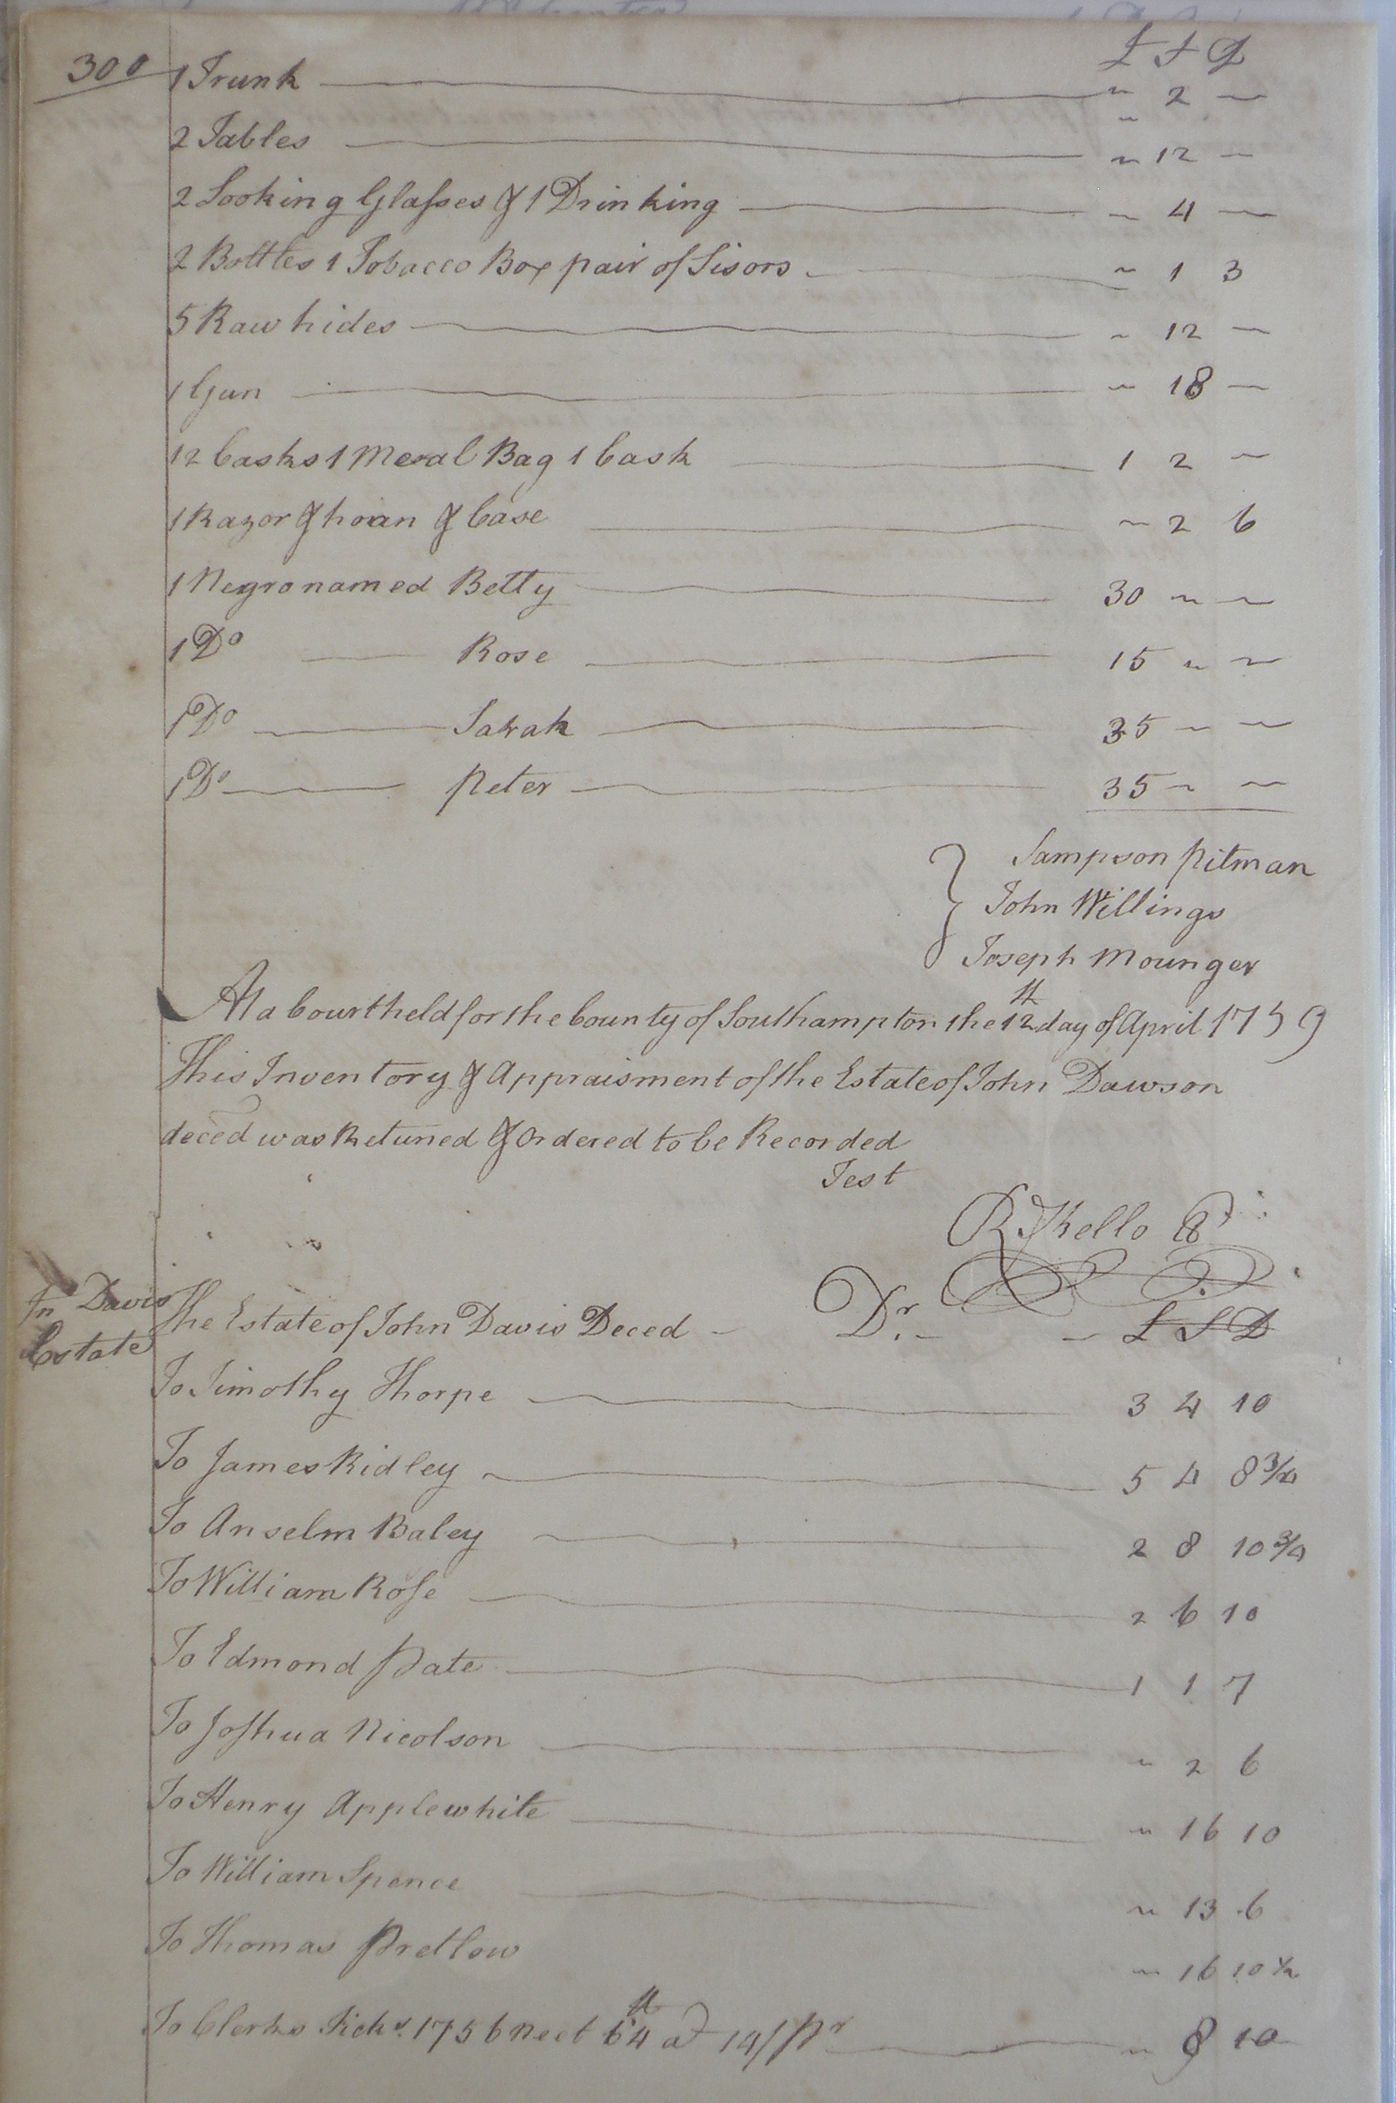 £ S D
300
1 Trunk " 2 —
2 Tables " 12 —
2 Looking Glasses & 1 Drinking " 4 —
2 Bottles 1 Tobacco Box pair of Sisors " 1 3
5 Raw hides " 12 —
1 Gun " 18 —
12 Casks 1 Meal Bag 1 Cask 1 2 —
1 Razor & hoan & Case " 2 6
1 Negro named Betty 30 " "
1 Do Rose 15 " "
1 Do Sarah 35 " "
1 Do Peter 35 " "
Sampson Pitman
John Willings
Joseph Mounger
At a Court held for the County of Southampton the 12th day of April 1759
This Inventory & Appraisment of the Estate of John Dawson
deced was Retuned & Ordered to be Recorded
Test
R. Kello
Jn Davis
Estate
The Estate of John Davis Deced Dr. £ S D
To Timothy Thorpe 3 4 10
To James Ridley 5 4 8 3/4
To Anselm Baley 2 8 10 3/4
To William Rose 2 6 10
To Edmond Pate 1 1 7
To Joshua Nicolson " 2 6
To Henry Applewhite " 16 10
To William Spence " 13 6
To Thomas Pretlow " 16 10 1/2
To Clerks Tickt. 1756 neet 64 at 14/ Pr " 8 10